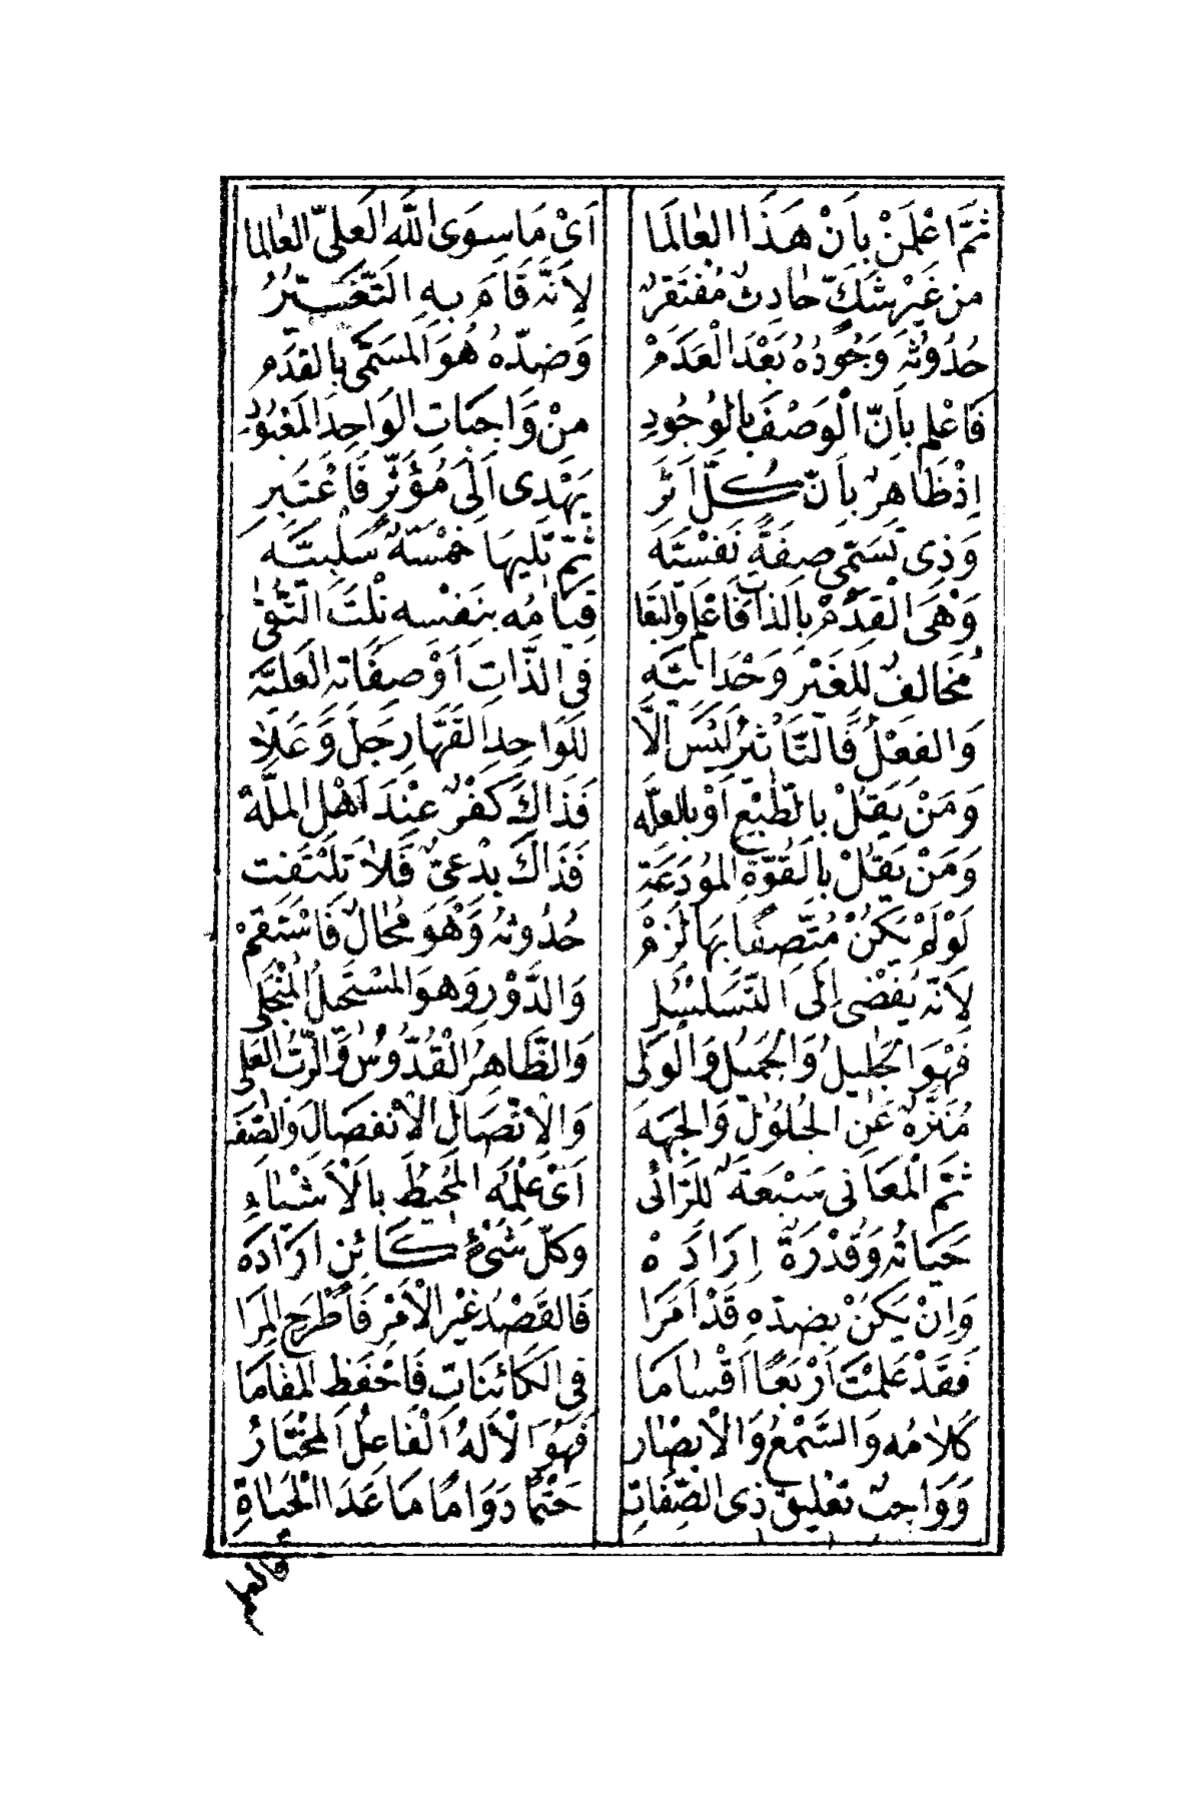 ثُمَّ اعْلَمَنْ بِاَنْ هَذَا العٰالَمَا اَيْ مَا سِوَى اللَّهِ الْعَلِىِّ العٰالِمَا
مِن غَيْرِ شَكٍّ حٰادِثٌ مُفْتَقِرٌ لِاَنَّهُ قَامَ بِهِ التَّغَيُّرُ
حُدُوثُهُ وُجُودُهُ بَعْدَ الْعَدَمْ وَضِدُّهُ هُوَ الْمُسَمَّى بِالقِدَمِ
فَاعْلَم بِاَنَّ الْوَصْفَ بِالوُجُودِ مِنْ وَاجِبَاتِ الْوَاحِدِ الْمَعْبُودِ
اِذْ ظَاهِرٌ بِاَنَّ كُلَّ اَثَرَ يَهْدِى اِلَى مُؤَثِّرٍ فَاعْتَبِرِ
وَذِى تُسَمَّى صِفَةً نَفْسِيَّه ثُمَّ تَلِيهَا خَمْسَةٌ سَلْبِيَّه
وَهْىَ الْقِدَمْ بِالذَاتِ فَاعْلَم وَالبَقَا قِيَامُهُ بِنَفْسِهِ نِلْتَ التُّقٰى
مُخَالِفٌ لِلغَيْرِ وَحْدَانِيَّه فِي الذَّاتِ اَوْ صِفَاتِهِ الْعَلِيَّه
وَالفِعْلِ فَالتَّأْثِيرُ لَيْسَ اِلَّا لِلْوَاحِدِ القَهَّارِ جَلَّ وَعَلَا
وَمَنْ يَقُلْ بِالطَّبْعِ اَوْ بِالعِلَّه فَذَاكَ كُفْرٌ عِنْدَ اَهْلِ المِلَّه
وَمَنْ يَقُلْ بِالقُوَّةِ المُودَعَةِ فَذَاكَ بِدْعِىٌّ فَلاٰ تَلْتَفِت
لَوْ لَمْ يَكُنْ مُتَّصِفًا بِهَا لَزِمْ حُدُوثُهُ وَهْوَ مُحَالٌ فَاسْتَقِمْ
لِاَنَّهُ يُفْضِى اِلَى التَّسَلْسُلِ وَالدَّوْرِ وَهوَ المُسْتَحِيلُ المُنْجَلِى
فَهْوَ الجَلِيلُ وَالجَمِيلُ وَالْوَلِى وَالظَّاهِرُ الْقُدُّوسُ وَالرَّبُّ العَلِى
مُنَزَّهٌ عَنِ الحُلُولِ وَالجِهَه وَالاِتِّصَالِ الاِنْفِصَالِ وَالصِّفَه
ثُمَّ الْمَعَانِى سَبْعَةٌ لِلرَّائِى اَىْ عِلْمُهُ الْمُحِيطُ بِالْاَشْيٰاءِ
حَيَاتُهُ وَقُدْرَةٌ اِرَادَهْ وَكُلُّ شَىْءٍ كَائِنٍ اَرَادَه
وَاِنْ يَكُنْ بِضِدِّهِ قَدْ اَمَرَا فَالقَصْدُ غَيْرُ الْاَمْرِ فَاطْرَحِ المِرَا
فَقَدْ عَلِمْتَ اَرْبَعًا اَقْسٰامَا فِي الْكَائِنَاتِ فَاحْفَظِ المَقَامَا
كَلَامُهُ وَالسَّمْعُ وَالاَبْصَارُ فَهْوَ الْاِلَهُ الْفَاعِلُ المُخْتَارُ
وَوَاجِبٌ تَعْلِيقُ ذِى الصِّفَاتِ حَتْمًا دَوَامًا مَا عَدَا الْحَيٰاةِ
فالعلم